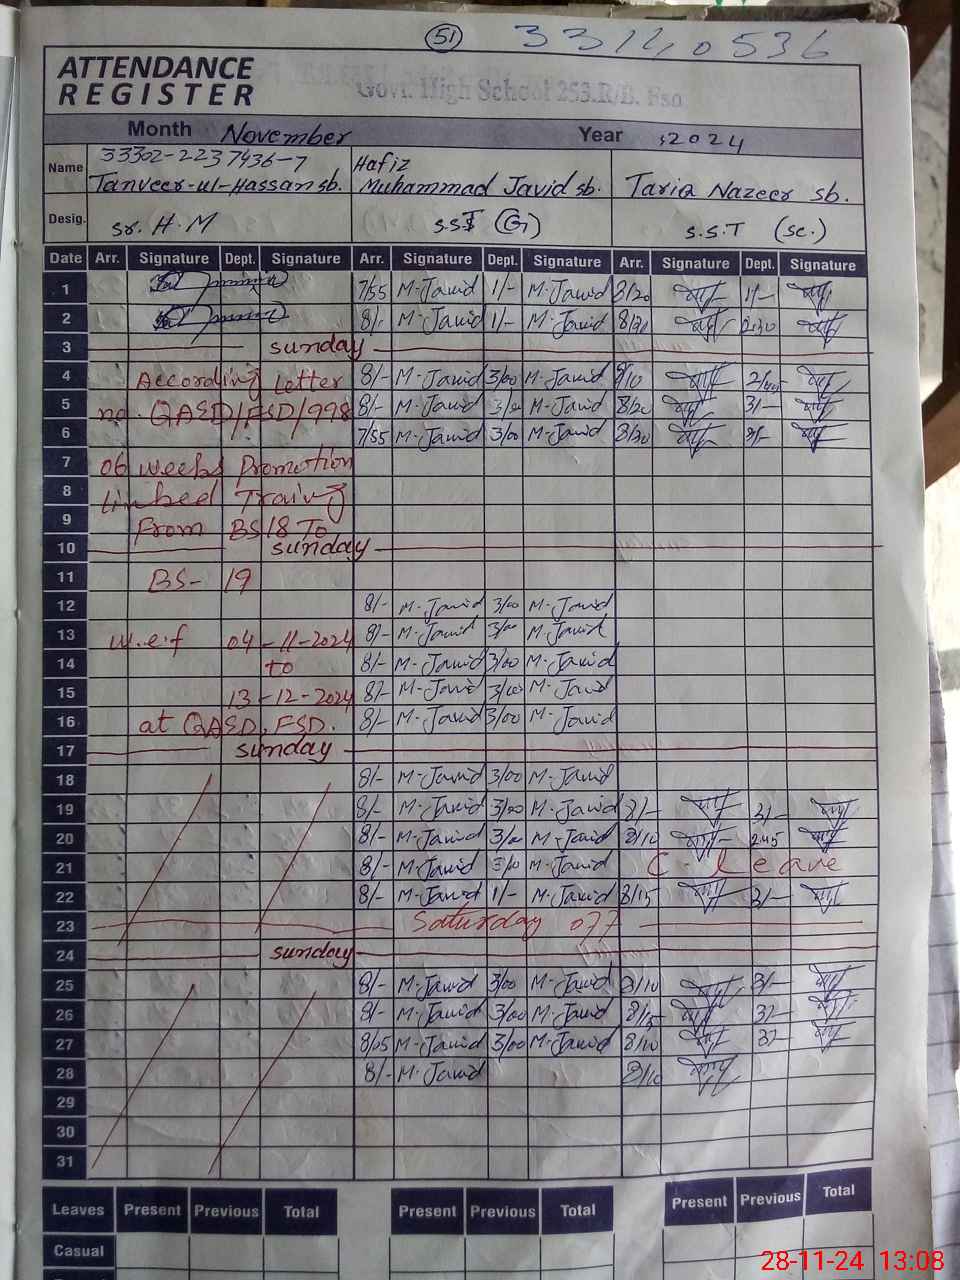 51 33140536
ATTENDANCE
REGISTER
Govt. High School 253.R/B. Fsd
Month November Year 2024
Name 33302-2237436-7 Tanveer-ul-Hassan sb. Hafiz Muhammad Javid sb. Tariq Nazeer sb.
Desig. sr. H.M S.S.T (G) S.S.T (Sc.)
Date Arr. Signature Dept. Signature Arr. Signature Dept. Signature Arr. Signature Dept. Signature
1 7/55 M.Javid 1/- M.Javid 8/20 1/-
2 8/- M.Javid 1/- M.Javid
3 sunday
4 According Letter 8/- M.Javid 3/00 M.Javid
5 no. QASD/FSD/998 8/- M.Javid 3/00 M.Javid 8/20 3/-
6 7/55 M.Javid 3/00 M.Javid 8/30
7 06 weeks Promotion
8 linked Traing
9 From BS 18 To
10 sunday
11 BS- 19
12 8/- M.Javid 3/00 M.Javid
13 w.e.f 04-11-2024 8/- M.Javid 3/00 M.Javid
14 to 8/- M.Javid 3/00 M.Javid
15 13-12-2024 8/- M.Javid 3/00 M.Javid
16 at QASD, FSD. 8/- M.Javid 3/00 M.Javid
17 sunday
18 8/- M.Javid 3/00 M.Javid
19 8/- M.Javid 3/00 M.Javid 8/- 3/-
20 8/- M.Javid 3/00 M.Javid 8/10 2.45
21 8/- M.Javid 3/0 M.Javid C-leave
22 8/- M.Javid 1/- M.Javid 8/15
23 Saturday off
24 sunday
25 8/- M.Javid 3/00 M.Javid 8/10 3/-
26 8/- M.Javid 3/00 M.Javid 8/15
27 8/05 M.Javid 3/00 M.Javid 8/10
28 8/- M.Javid 8/10
29
30
31
Leaves Present Previous Total Present Previous Total Present Previous Total
Casual
28-11-24 13:08